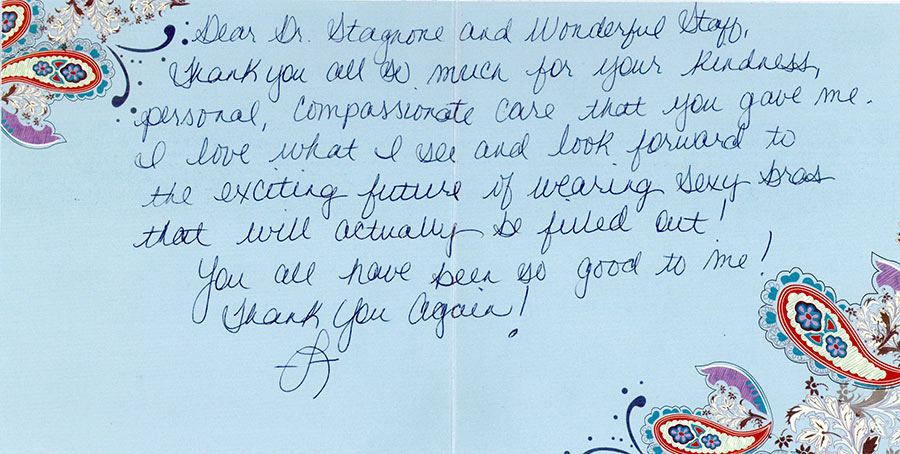 Dear Dr. Stagnone and Wonderful Staff,
Thank you all so much for your kindness,
personal, compassionate care that you gave me.
I love what I see and look forward to
the exciting future of wearing sexy bras
that will actually be filled out!
You all have been so good to me!
Thank You Again!